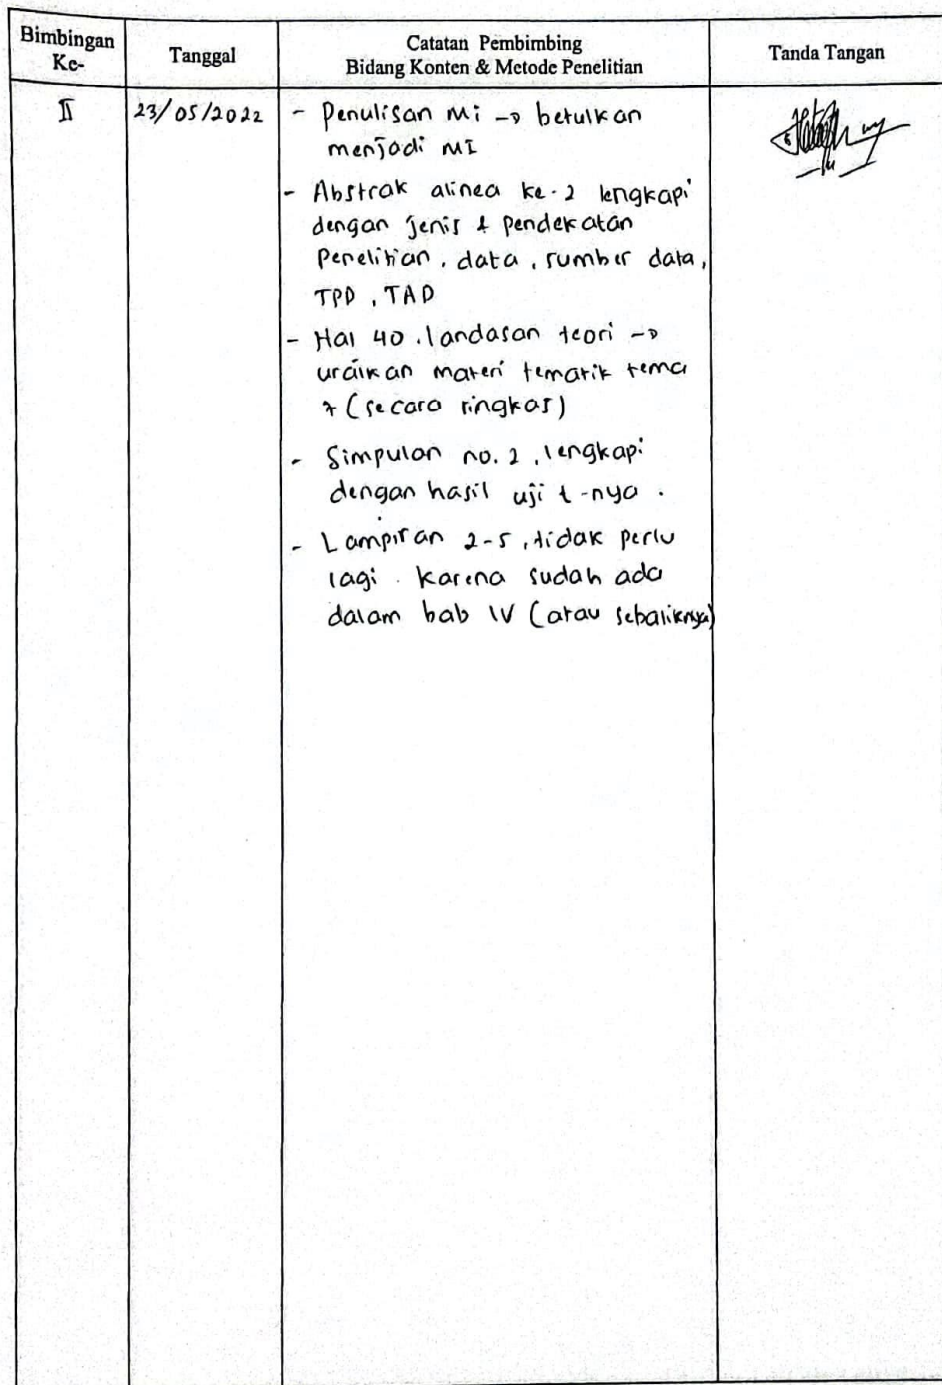 Bimbingan Ke-
Tanggal
Catatan Pembimbing
Bidang Konten & Metode Penelitian
Tanda Tangan
II
23/05/2022
- Penulisan Mi → betulkan
menjadi MI
- Abstrak alinea ke-2 lengkapi
dengan jenis & pendekatan
Penelitian, data, sumber data,
TPD, TAD
- Hal 40. landasan teori →
uraikan materi tematik tema
7 (secara ringkas)
- Simpulan no. 2, lengkapi
dengan hasil uji t-nya.
- Lampiran 2-5, tidak perlu
lagi. Karena sudah ada
dalam bab IV (atau sebaliknya)